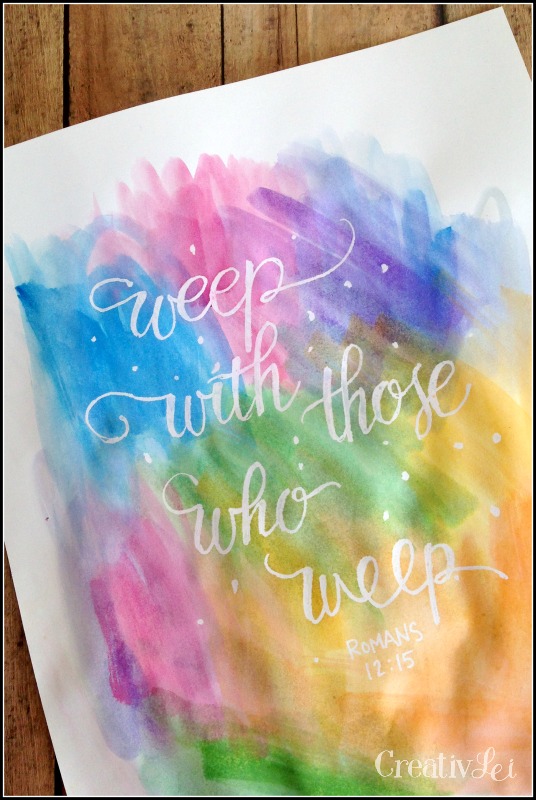 weep
with those
who
weep.
ROMANS
12:15
CreativLei